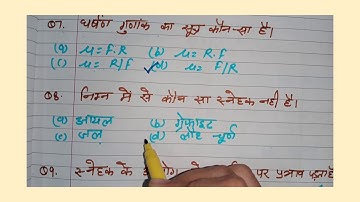 Q7. घर्षण गुणांक का सूत्र कौन-सा है।
(a) μ = F.R (b) μ = R.f
(c) μ = R/f (d) μ = F/R
Q8. निम्न में से कौन सा स्नेहक नही है।
(a) आयल (b) ग्रेफाइट
(c) जल (d) लौह चूर्ण
Q9. स्नेहक के पर प्रभाव